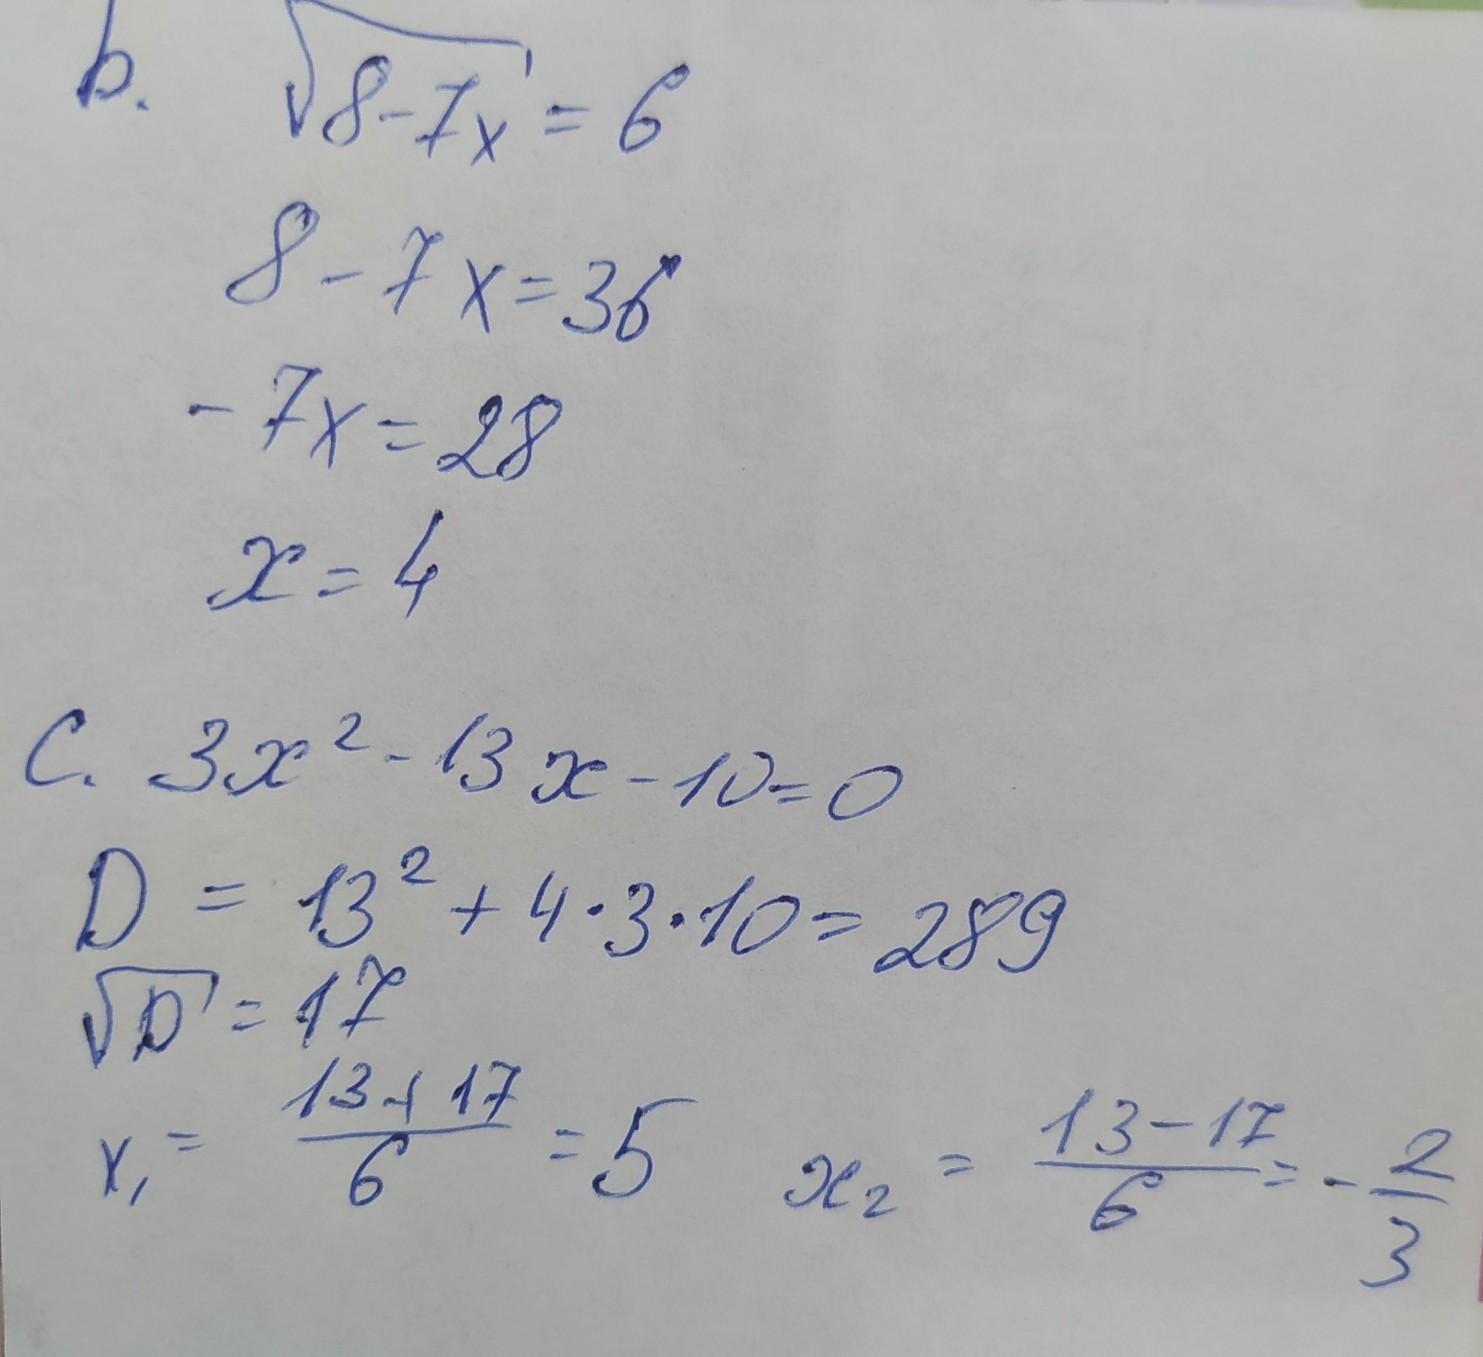 b. √8-7x = 6
8-7x=36
-7x=28
x=4
C. 3x²-13x-10=0
D = 13²+4·3·10=289
√D=17
x₁ = 13+17/6 = 5 x₂ = 13-17/6 = -2/3